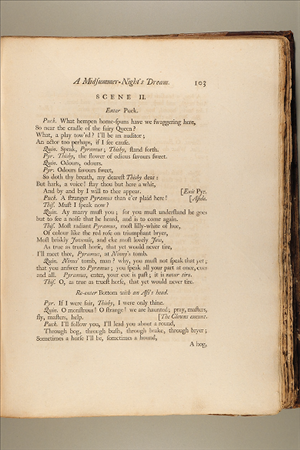 A Midsummer-Night's Dream. 103
SCENE II.
Enter Puck.
Puck. What hempen home-spuns have we swaggering here,
So near the cradle of the fairy Queen?
What, a play tow'rd? I'll be an auditor;
An actor too perhaps, if I see cause.
Quin. Speak, Pyramus; Thisby, stand forth.
Pyr. Thisby, the flower of odious savours sweet.
Quin. Odours, odours.
Pyr. Odours savours sweet,
So doth thy breath, my dearest Thisby dear:
But hark, a voice! stay thou but here a whit,
And by and by I will to thee appear. [Exit Pyr.
Puck. A stranger Pyramus than e'er plaid here! [Aside.
Thif. Must I speak now?
Quin. Ay marry must you; for you must understand he goes
but to see a noise that he heard, and is to come again.
Thif. Most radiant Pyramus, most lilly-white of hue,
Of colour like the red rose on triumphant bryer,
Most briskly Juvenile, and eke most lovely Jew,
As true as truest horse, that yet would never tire,
I'll meet thee, Pyramus, at Ninny's tomb.
Quin. Ninus' tomb, man? why, you must not speak that yet;
that you answer to Pyramus; you speak all your part at once, cues
and all. Pyramus, enter, your cue is past; it is never tire.
Thif. O, as true as truest horse, that yet would never tire.
Re-enter Bottom with an Ass's head.
Pyr. If I were fair, Thisby, I were only thine.
Quin. O monstrous! O strange! we are haunted; pray, masters,
fly, masters, help. [The Clowns exeunt.
Puck. I'll follow you, I'll lead you about a round,
Through bog, through bush, through brake, through bryer;
Sometimes a horse I'll be, sometimes a hound,
A hog,